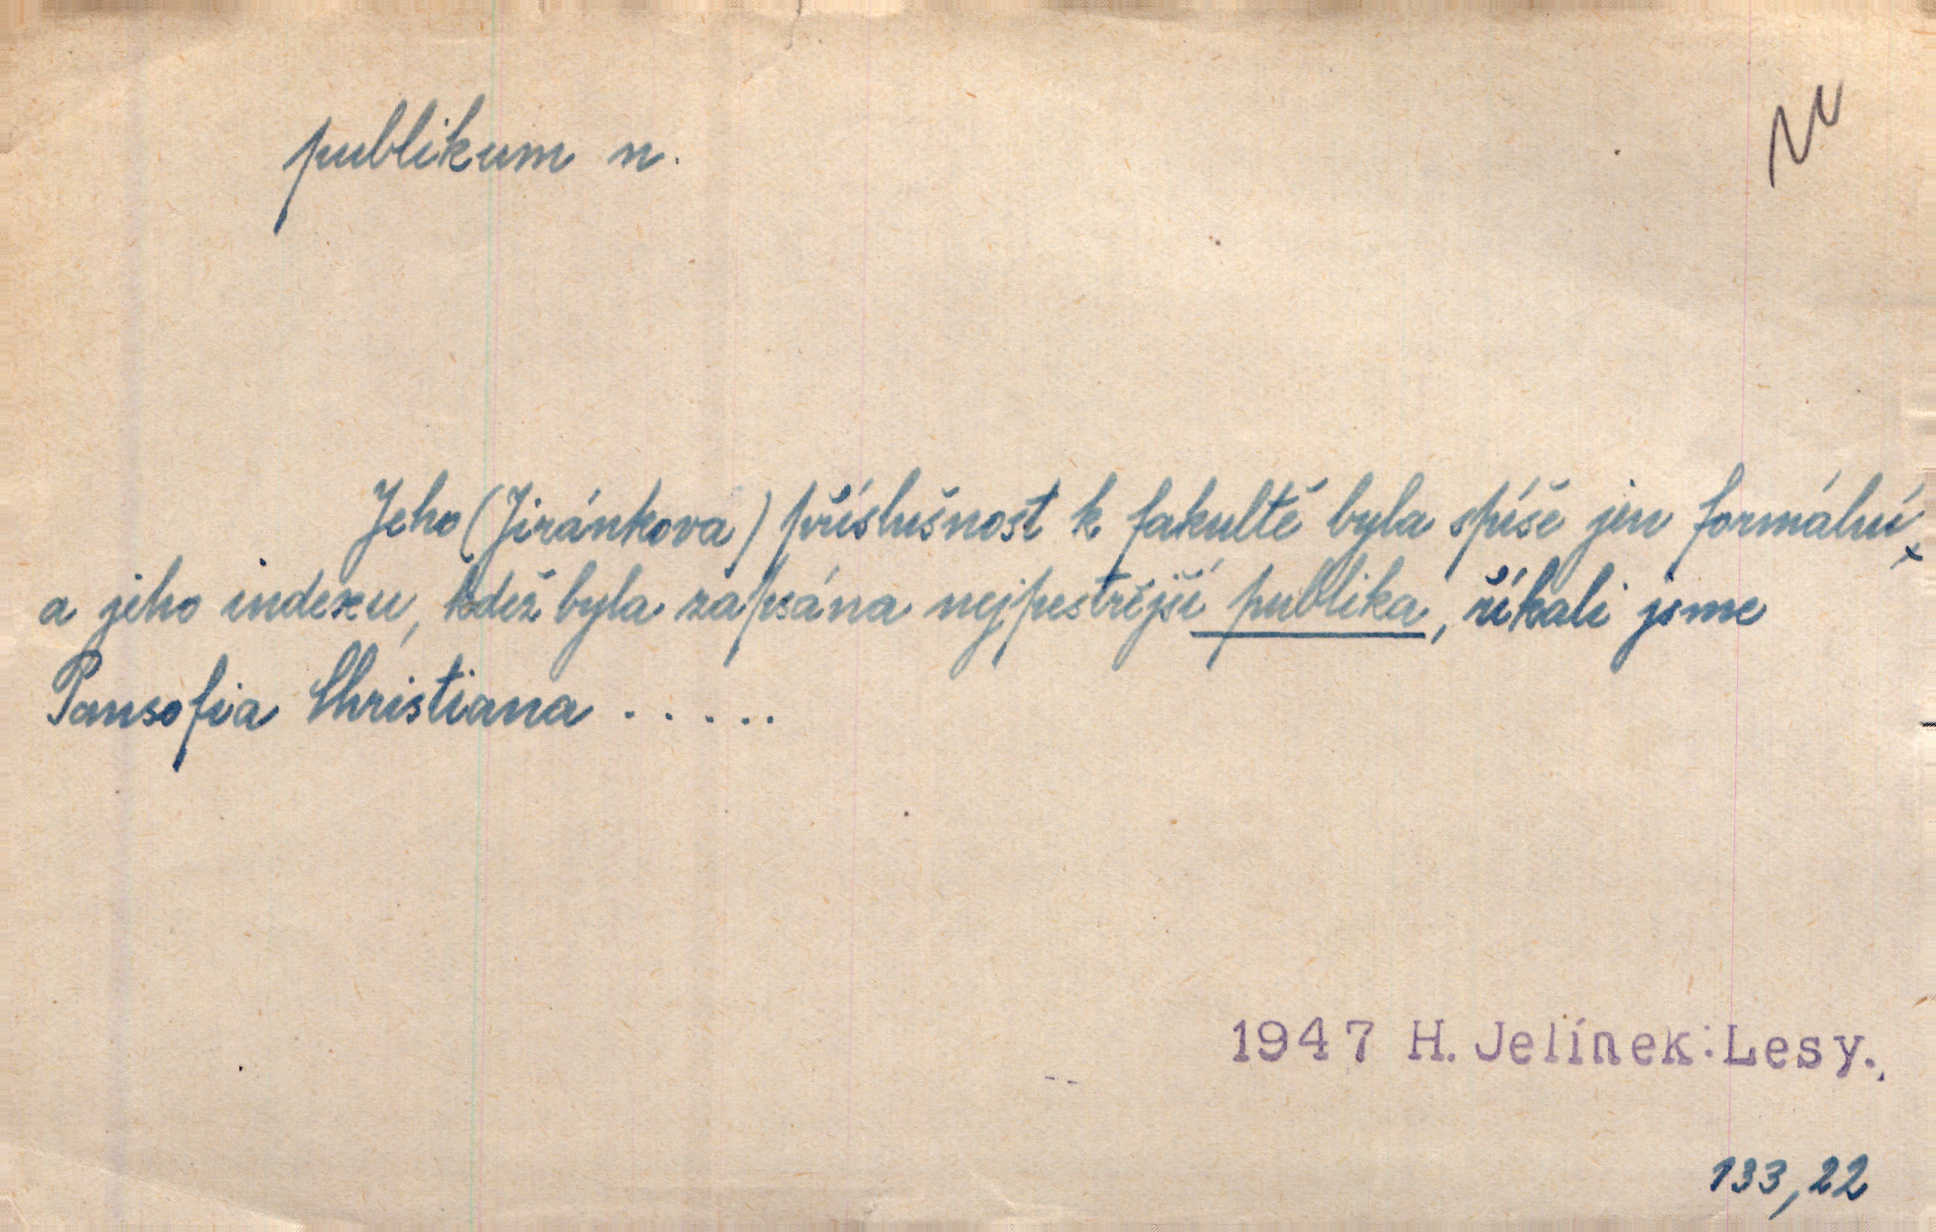 publikum n.
Jeho (Jiránkova) příslušnost k fakultě byla spíše jen formální,
a jeho indexu, kdež byla zapsána nejpestřejší publika, říkali jsme
Pansofia Christiana .....
1947 H. Jelínek: Lesy.,
133,22